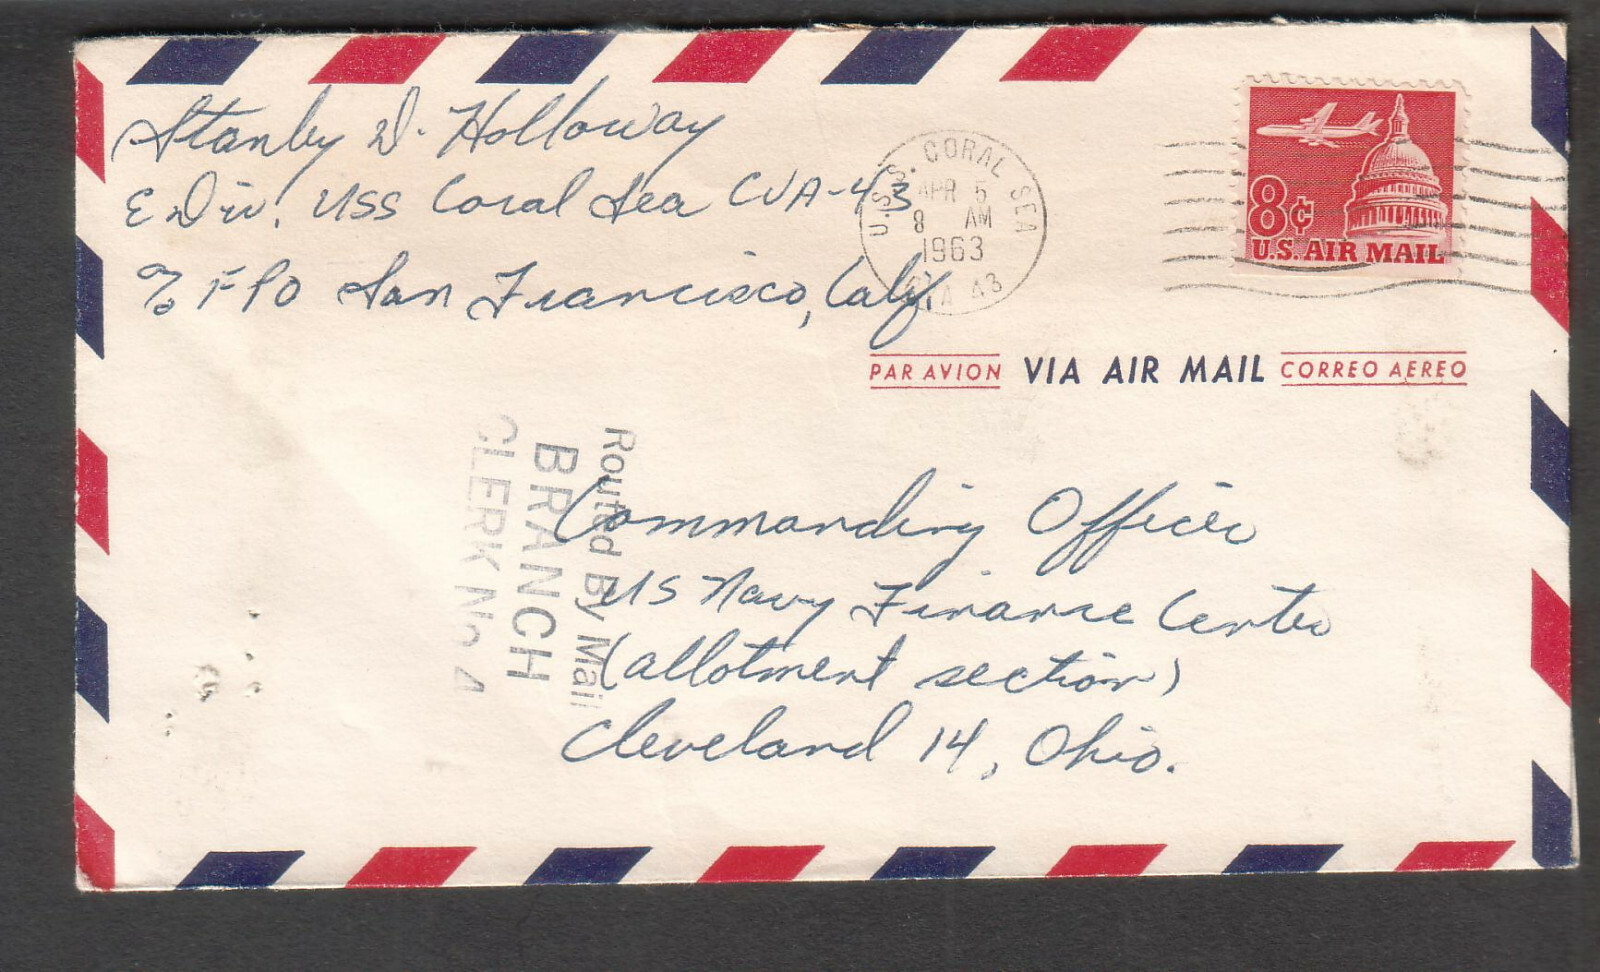 Stanley D. Holloway
E Div. USS Coral Sea CVA-43
% FPO San Francisco, Calif.
U.S.S. CORAL SEA
APR 5
8 AM
1963
CVA 43
8¢
U.S. AIR MAIL
PAR AVION VIA AIR MAIL CORREO AEREO
Routed By Mail
BRANCH
CLERK No. 4
Commanding Officer
US Navy Finance Center
(allotment section)
Cleveland 14, Ohio.